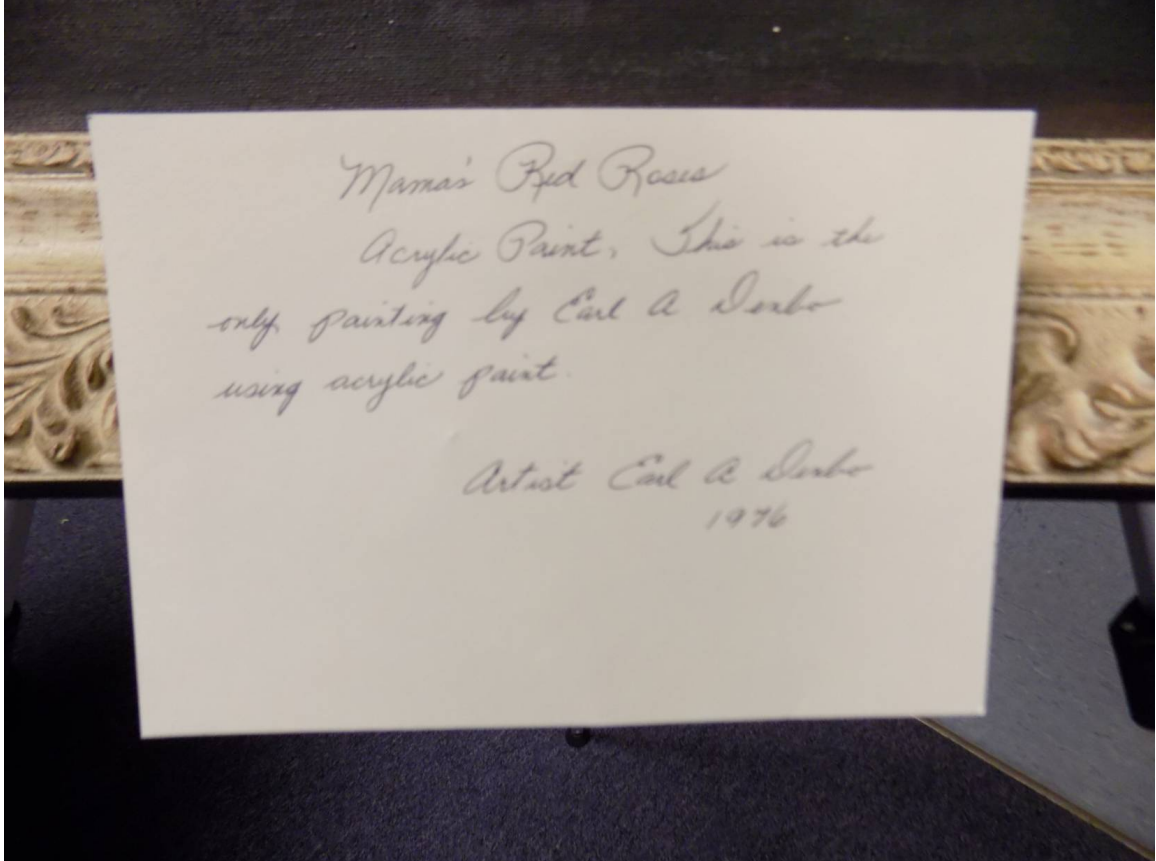 Mama's Red Roses
Acrylic Paint, This is the
only painting by Earl A Denbo
using acrylic paint.
Artist Earl A Denbo
1976